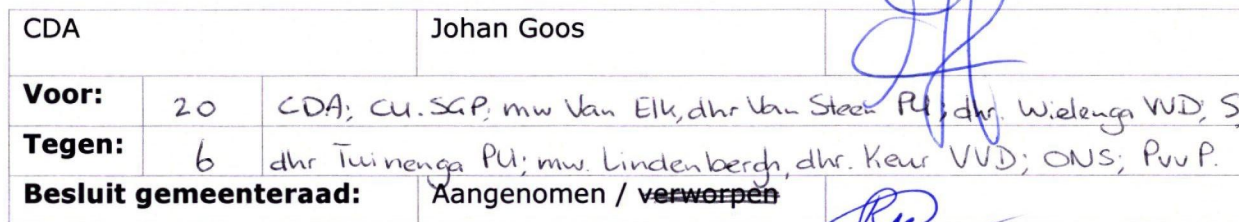 CDA Johan Goos
Voor: 20 CDA; CU.SGP; mw Van Elk, dhr Van Steen PU; dhr. Wielenga VVD; S
Tegen: 6 dhr Tuinenga PU; mw. Lindenbergh, dhr. Keur VVD; ONS; PvvP.
Besluit gemeenteraad: Aangenomen / verworpen